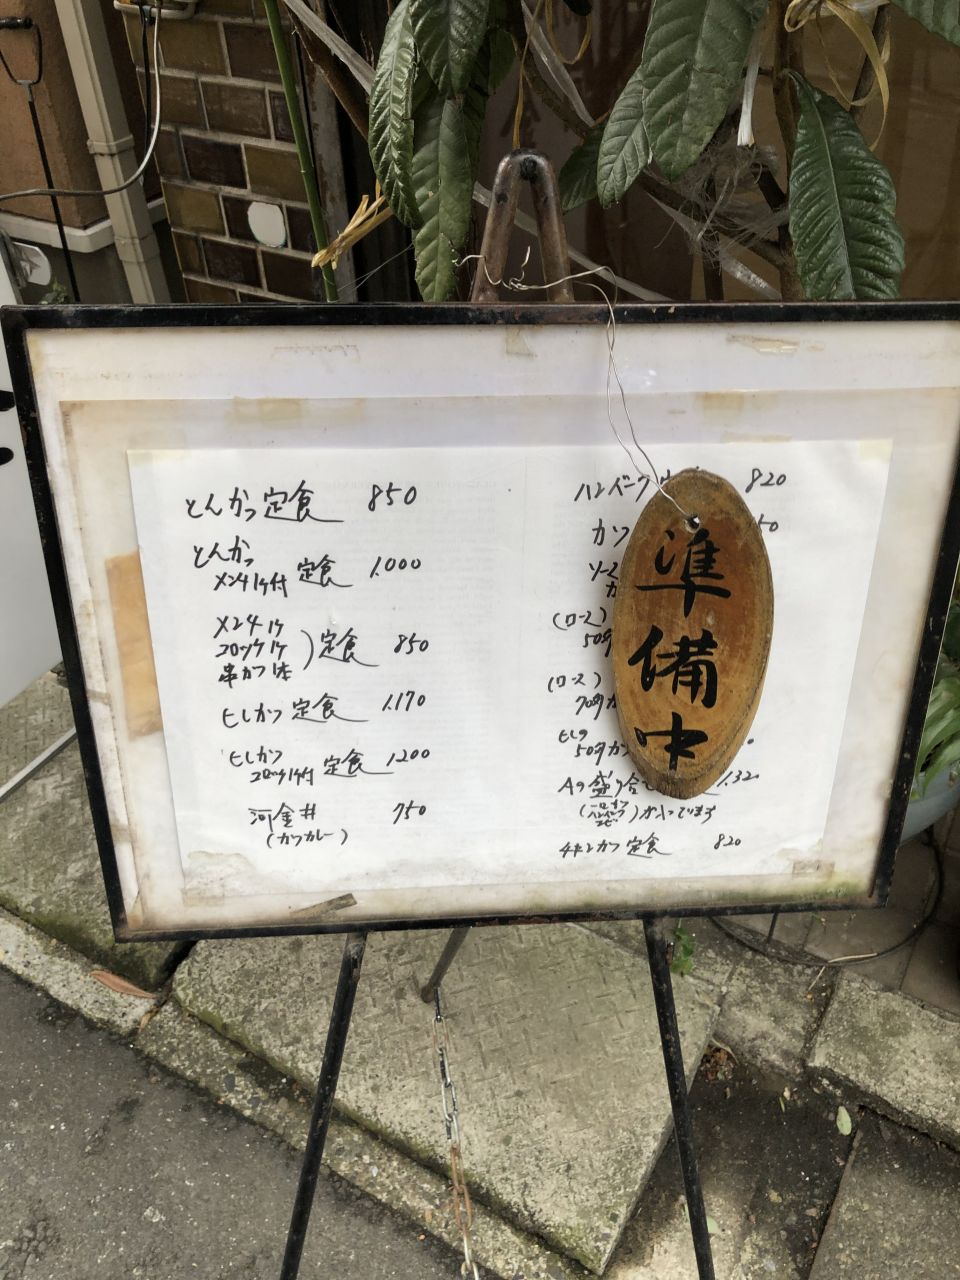 とんかつ定食 850
とんかつ
メンチ1ケ付 定食 1,000
メンチ1ケ
コロッケ1ケ
串かつ1本
定食 850
ヒレかつ定食 1,170
ヒレかつ
コロッケ1ケ付 定食 1,200
河金丼 750
(カツカレー)
ハンバーグ 820
カツ 50
ソース
カ
(ロース)
50匁
(ロース)
70匁カ
ヒレの
50匁カツ
Aの盛り合 1,32
ハンバーグ
エビ
が入っています
チキンカツ定食 820
準備中